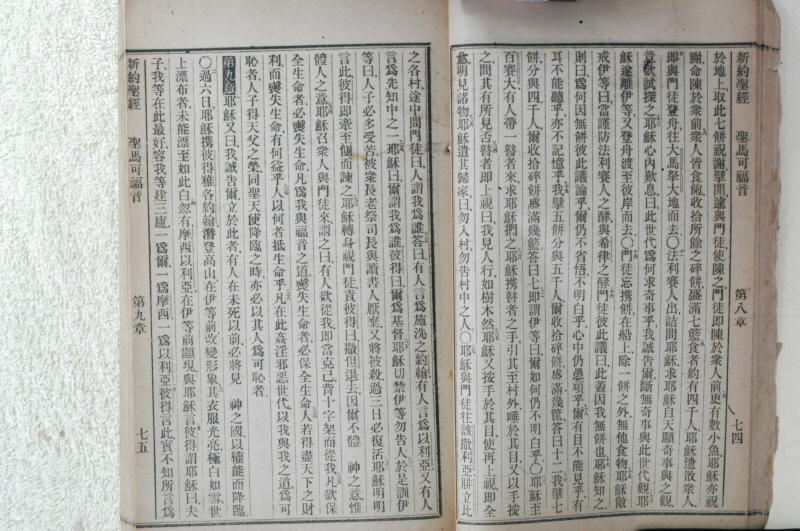 新約聖經 聖馬可福音 第八章 七四
於地上取此七餅祝謝擘開遞與門徒使陳之門徒即陳於衆人前更有數小魚耶穌亦祝
謝命陳於衆前衆人皆食飽收拾所餘之碎餅盛滿七籃食者約有四千人耶穌遣散衆人
即與門徒登舟往大馬拏大地而去〇法利賽人出詰問耶穌求耶穌自天顯奇事與之觀
意欲試探之耶穌心內歎息曰此世代爲何求奇事乎我誠告爾斷無奇事與此世代觀耶
穌遂離伊等又登舟渡至彼岸而去〇門徒忘携餅在船上除一餅之外無他食物耶穌儆
戒伊等曰當謹防法利賽人之酵與希律之酵門徒彼此議曰此蓋因我無餅也耶穌知之
則曰爲何因無餅彼此議論乎爾仍不省悟不明白乎心中仍愚頑乎爾有目不能見乎有
耳不能聽乎亦不記憶乎我擘五餅分與五千人爾收拾碎餅盛滿幾筐答曰十二我擘七
餅分與四千人爾收拾碎餅盛滿幾籃答曰七即謂伊等曰爾如何仍不明白乎〇耶穌至
百賽大有人帶一瞽者來求耶穌捫之耶穌携瞽者之手引其至村外唾於其目又以手按
之問其有所見否瞽者即上視曰我見人行如樹木然耶穌又按手於其目使再上視即全
愈明見諸物耶穌遣其歸家曰勿入村勿告村中之人〇耶穌與門徒往該撒利亞腓立此
之各村途中問門徒曰人謂我爲誰答曰有人言爲施洗之約翰有人言爲以利亞又有人
言爲先知中之一耶穌曰爾謂我爲誰彼得曰爾爲基督耶穌切禁伊等勿告人於是訓伊
等曰人子必多受苦被衆長老祭司長與讀書人厭棄又將被殺過三日必復活耶穌明明
言此彼得即牽至側而諫之耶穌轉身視門徒責彼得曰撒但退去因爾不體 神之意惟
體人之意耶穌召衆人與門徒來謂之曰有人欲從我即當克己背十字架而從我凡欲保
全生命者必喪失生命凡爲我與福音之道喪失生命者必保全生命人若得盡天下之財
利而喪失生命有何益乎人以何者抵生命乎凡在此姦淫邪惡世代以我與我之道爲可
恥者人子得天父之榮同聖天使降臨之時亦必以其人爲可恥者
第九章 耶穌又曰我誠告爾立於此者有人在未死以前必將見 神之國以權能而降臨
〇過六日耶穌携彼得雅各約翰潛登高山在伊等前改變形象其衣服光亮極白如雪世
上漂布者未能漂至如此白忽有摩西以利亞在伊等前顯現與耶穌言彼得謂耶穌曰夫
子我等在此最好容我等建三廬一爲爾一爲摩西一爲以利亞彼得言此實不知所言爲
新約聖經 聖馬可福音 第九章 七五